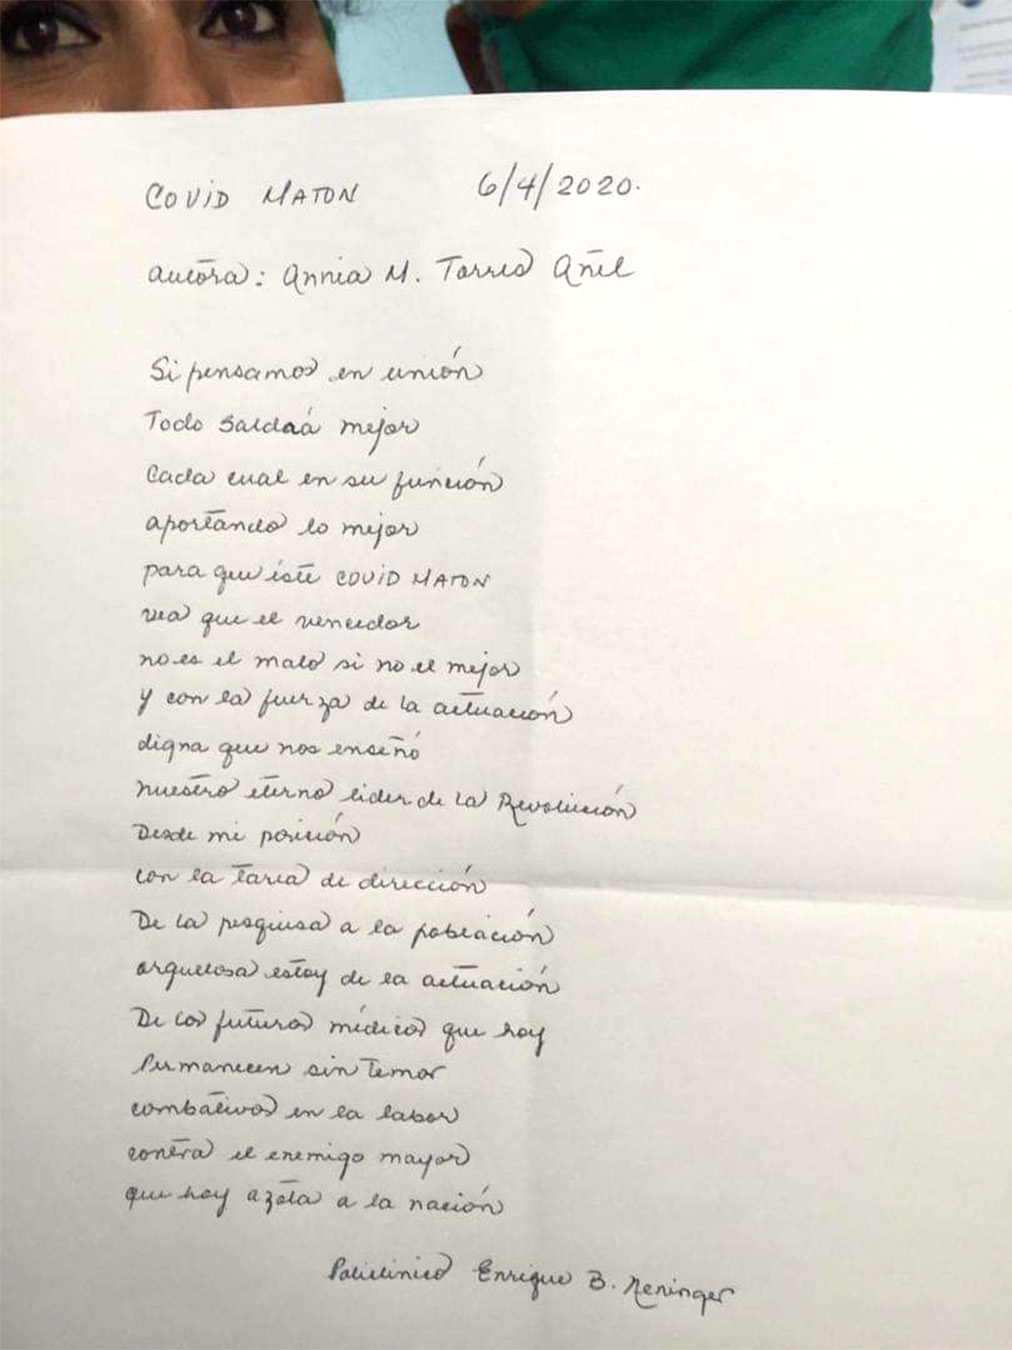 COVID MATON 6/4/2020.
autora: Annia M. Torres Añel
Si pensamos en unión
Todo saldaá mejor
Cada cual en su función
aportando lo mejor
para que éste COVID MATON
vea que el vencedor
no es el malo si no el mejor
y con la fuerza de la actuación
digna que nos enseñó
nuestro eterno lider de la Revolución
Desde mi posición
con la tarea de dirección
De la pesquisa a la población
orgullosa estoy de la actuación
De los futuros médicos que hoy
Permanecen sin temor
combativos en la labor
contra el enemigo mayor
que hoy azota a la nación
Policlínico Enrique B. Neninger